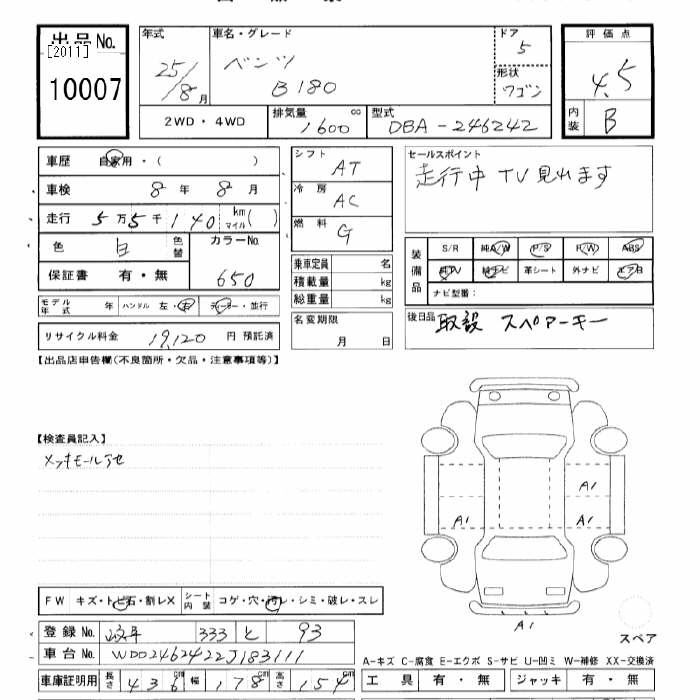 出品No.
[2011]
10007
年式
25/8月
車名・グレード
ベンツ
B180
ドア
5
形状
ワゴン
評価点
4.5
内装
B
2WD・4WD
排気量
cc
1600
型式
DBA-246242
車歴 自家用・( )
車検 8年 8月
走行 5万5千140 km マイル( )
色 白 色替 カラーNo. 650
保証書 有・無
モデル年式 年 ハンドル 左・右 ディーラー・並行
リサイクル料金 19,120 円 預託済
シフト AT
冷房 AC
燃料 G
乗車定員 名
積載量 kg
総重量 kg
名変期限
月 日
セールスポイント
走行中TV見れます
装備品
S/R 純A/W P/S P/W ABS
純TV 純ナビ 革シート 外ナビ エアB
ナビ型番:
後日品 取説 スペアーキー
【出品店申告欄(不良箇所・欠品・注意事項等)】
【検査員記入】
メッキモールアセ
A1
A1
A1
A1
スペア
FW キズ・トビ石・割レX シート内装 コゲ・穴・汚レ・シミ・破レ・スレ
登録No. 333 と 93
車台No. WDD2462422J183111
車庫証明用 長さ 436cm 幅 178cm 高さ 154cm
A-キズ C-腐食 E-エクボ S-サビ U-凹ミ W-補修 XX-交換済
工具 有・無 ジャッキ 有・無